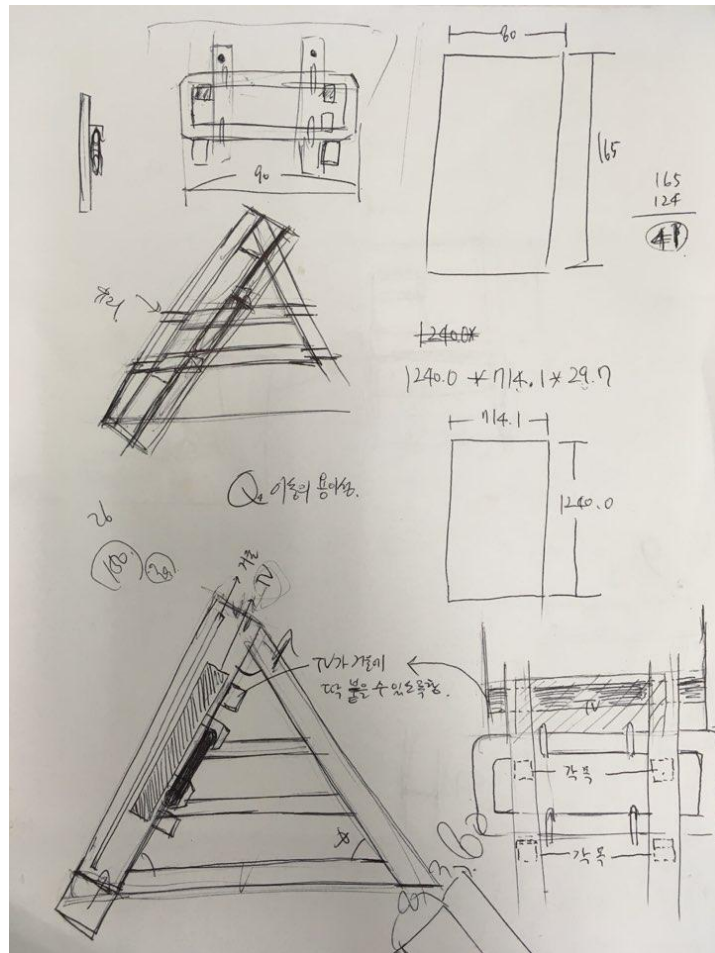 80
165
90
165
124
41
1240.0*
1240.0 * 714.1 * 29.7
714.1
1240.0
Q. 이동의 용이성.
26
150.
30
거울
TV
TV가 거울에
딱 붙을 수 있도록함.
TV
각목
각목